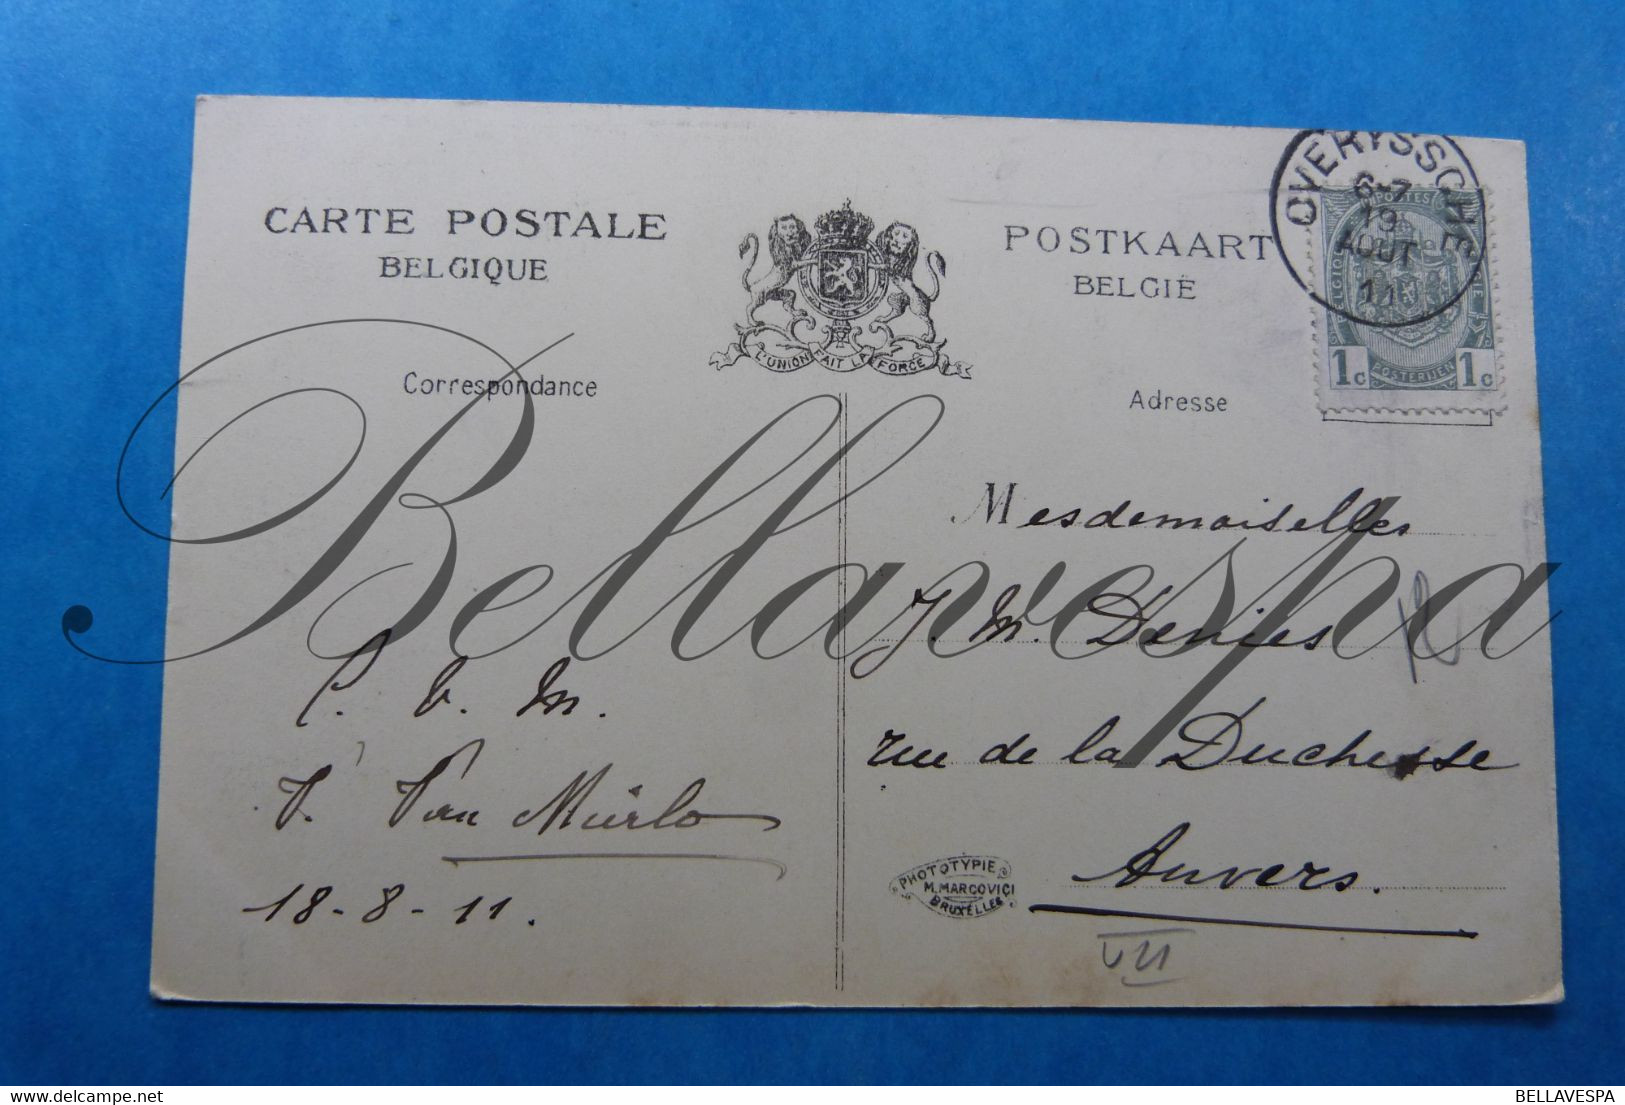 CARTE POSTALE
BELGIQUE
L'UNION FAIT LA FORCE
POSTKAART
BELGIË
OVERYSSCHE
6-7
19
AOUT
11
POSTES
BELGIQUE
BELGIE
1c POSTERIJEN 1c
Correspondance
Adresse
Bellavespa
Mesdemoiselles
J. M. Denies
rue de la Duchesse
Anvers.
VII
P. v. m.
Van Mierlo
18-8-11.
PHOTOTYPIE
M. MARCOVICI
BRUXELLES
delcampe.net
BELLAVESPA